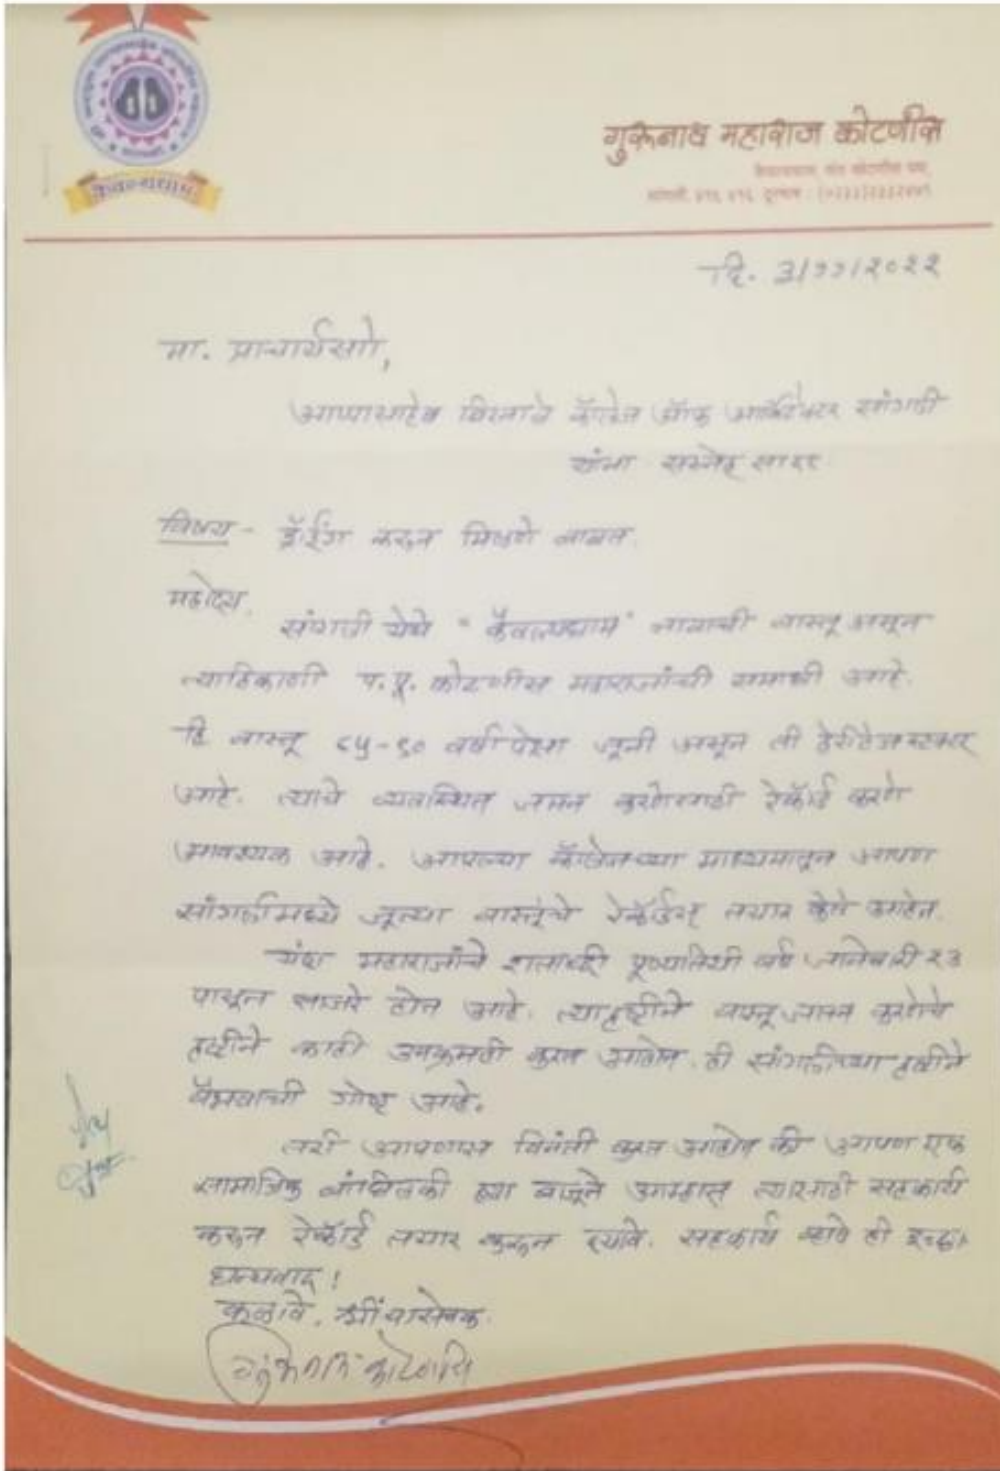 कैवल्यधाम
गुरुनाथ महाराज कोटणीस
दि. ३/११/२०२२
मा. प्राचार्यसाो,
आप्पासाहेब बिरनाळे कॉलेज ऑफ आर्किटेक्चर सांगली
यांना सस्नेह सादर
विषय - ड्रॉईंग करून मिळणे बाबत.
महोदय,
सांगली येथे "कैवल्यधाम" नावाची वास्तू असून
त्याठिकाणी प.पू. कोटणीस महाराजांची समाधी आहे.
हि वास्तू ८५-९० वर्षापेक्षा जूनी असून ती हेरीटेज स्टक्चर
आहे. त्याचे व्यवस्थित जतन करणेसाठी रेकॉर्ड करणे
आवश्यक आहे. आपल्या कॉलेजच्या माध्यमातून आपण
सांगलीमध्ये जून्या वास्तूंचे रेकॉर्डस् तयार केले आहेत.
यंदा महाराजांचे शताब्दी पूण्यतिथी वर्ष जानेवारी २३
पासून साजरे होत आहे. त्यादृष्टीने वास्तू जतन करणेचे
दृष्टीने काही उपक्रमही करत आहोत. ही सांगलीच्या दृष्टीने
वैभवाची गोष्ट आहे.
तरी आपणास विनंती करत आहोत की आपण एक
सामाजिक बांधिलकी ह्या बाजूने आम्हास त्यासाठी सहकार्य
करून रेकॉर्ड तयार करून द्यावे. सहकार्य व्हावे ही इच्छा.
धन्यवाद!
कळावे. श्रींचा सेवक.
गुरुनाथ कोटणीस